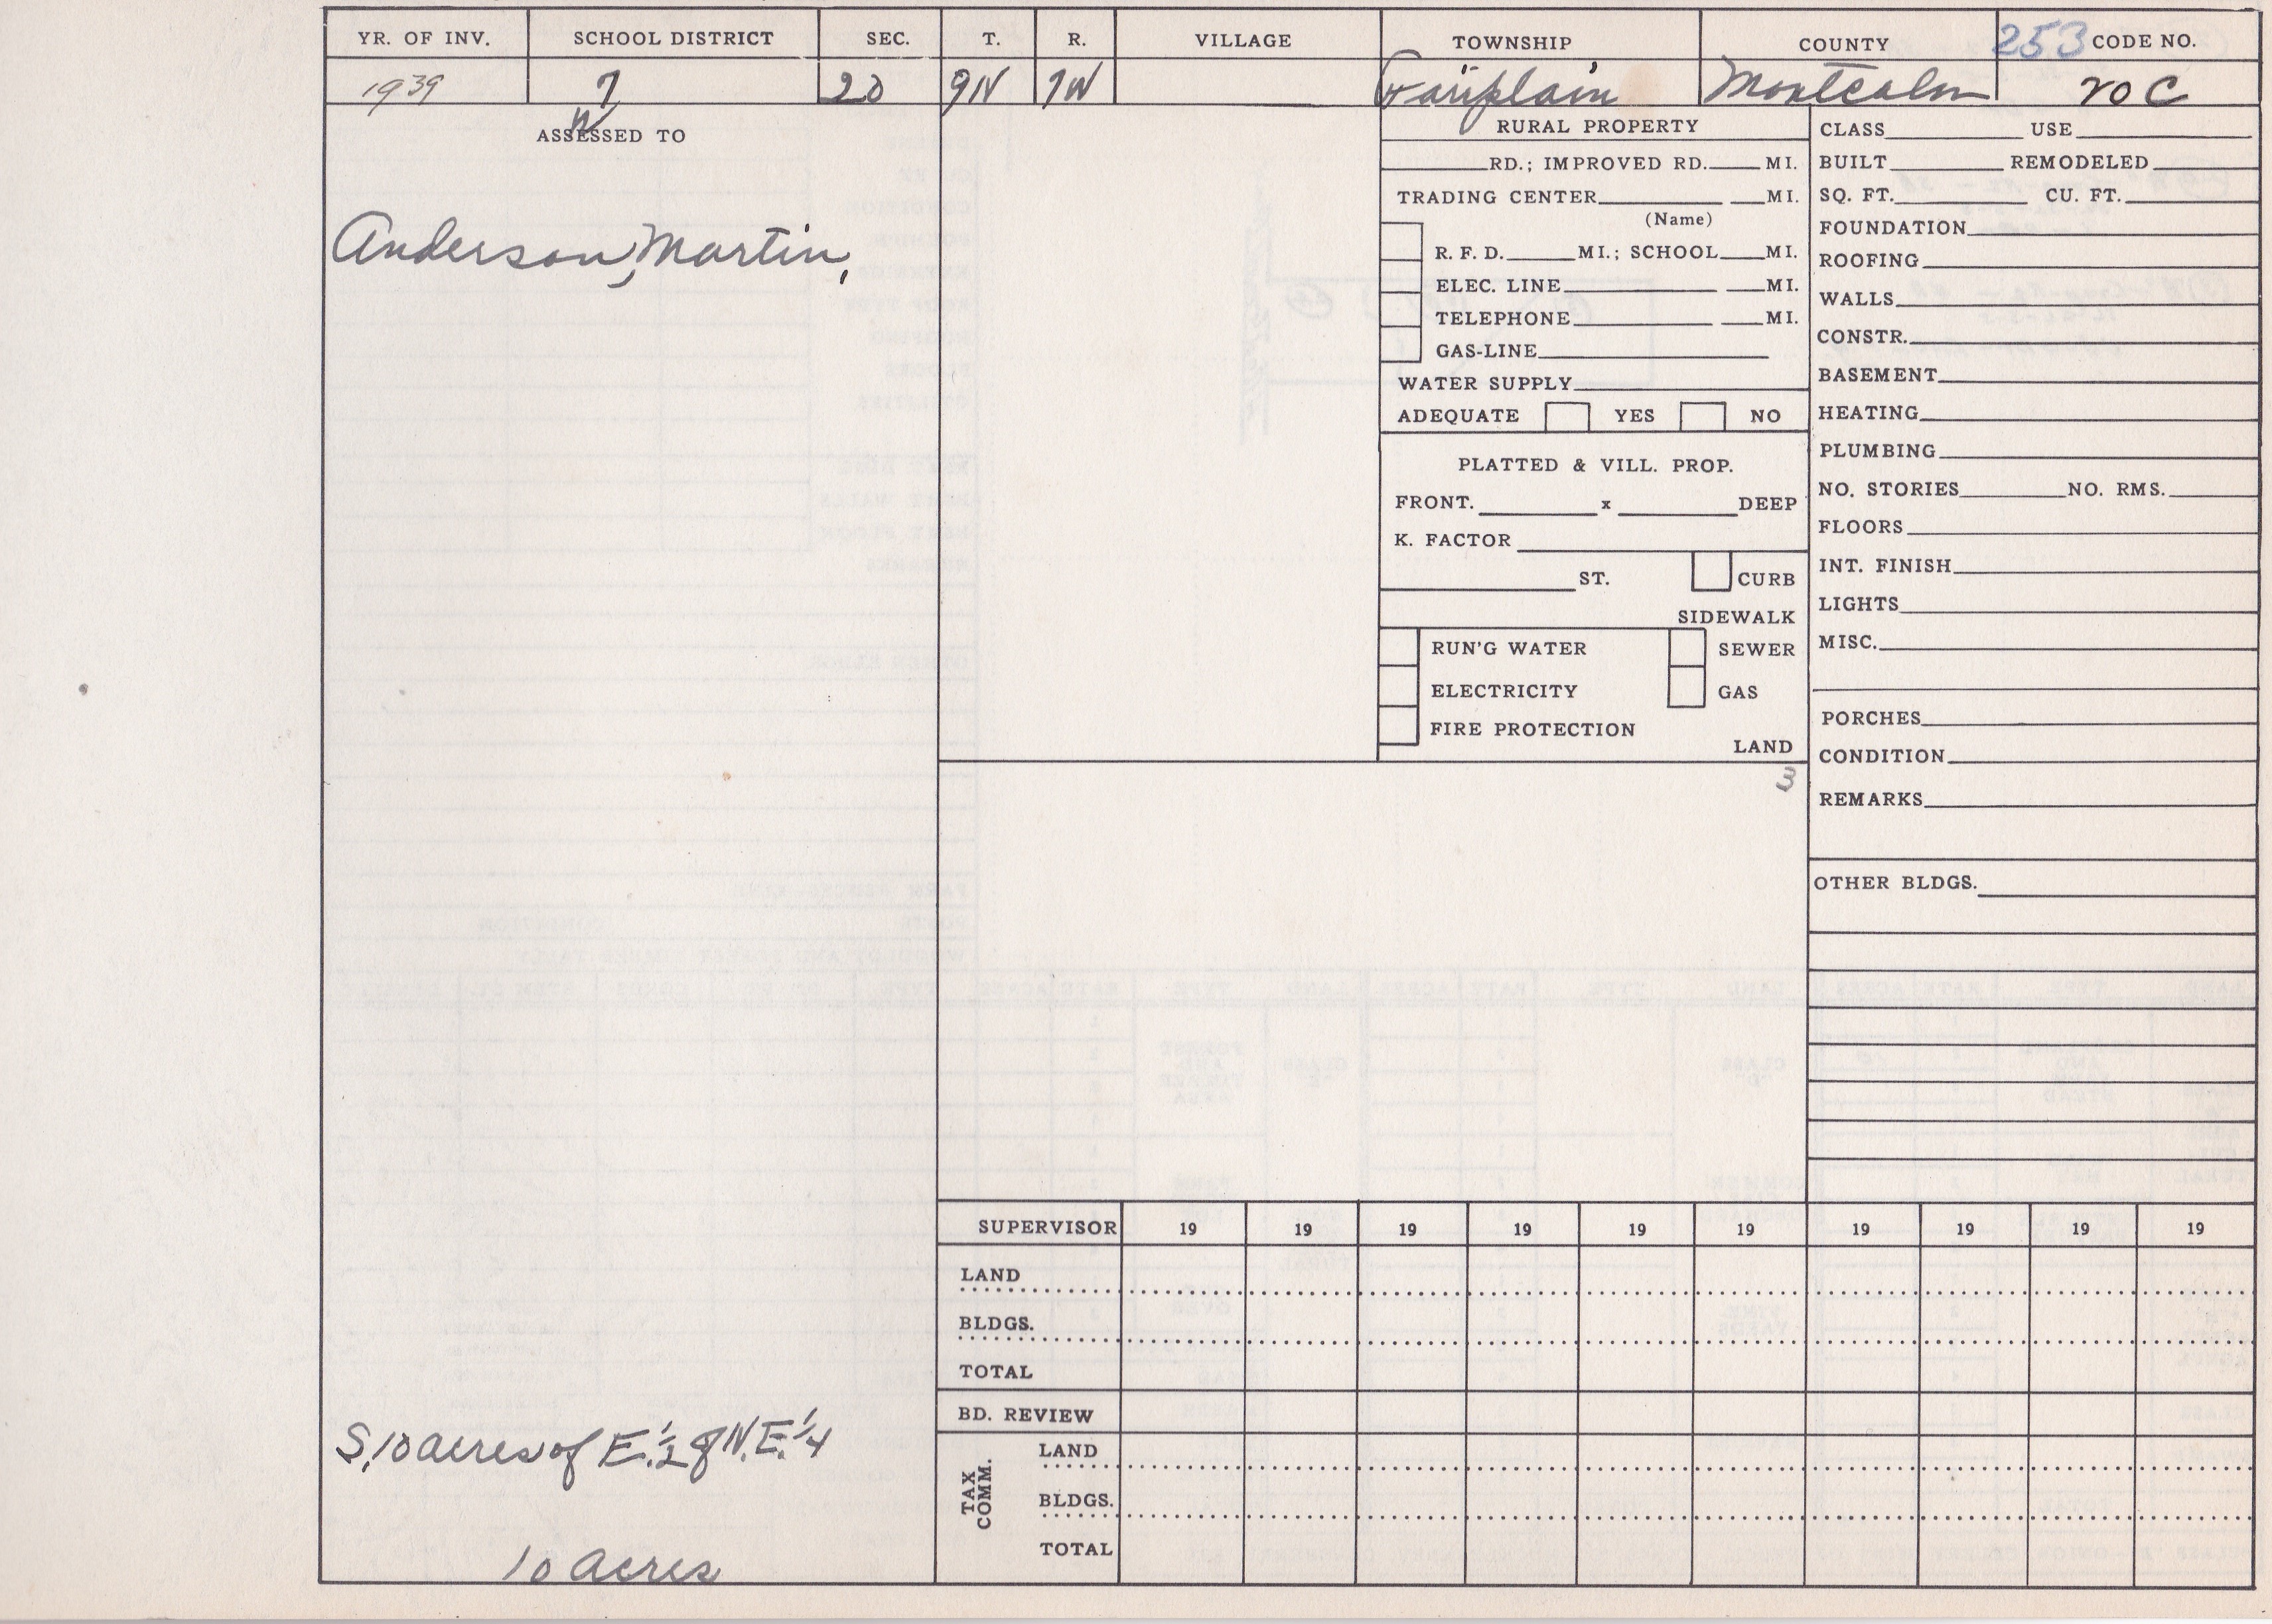 YR. OF INV. SCHOOL DISTRICT SEC. T. R. VILLAGE TOWNSHIP COUNTY 253 CODE NO.
1939 7 20 9N 7W Fairplain Montcalm 20 C
ASSESSED TO
Anderson, Martin,
S. 10 acres of E. 1/2 of N.E. 1/4
10 acres
RURAL PROPERTY
RD.; IMPROVED RD. MI.
TRADING CENTER MI.
(Name)
R. F. D. MI.; SCHOOL MI.
ELEC. LINE MI.
TELEPHONE MI.
GAS-LINE
WATER SUPPLY
ADEQUATE YES NO
PLATTED & VILL. PROP.
FRONT. x DEEP
K. FACTOR
ST. CURB
SIDEWALK
RUN'G WATER SEWER
ELECTRICITY GAS
FIRE PROTECTION
LAND
3
CLASS USE
BUILT REMODELED
SQ. FT. CU. FT.
FOUNDATION
ROOFING
WALLS
CONSTR.
BASEMENT
HEATING
PLUMBING
NO. STORIES NO. RMS.
FLOORS
INT. FINISH
LIGHTS
MISC.
PORCHES
CONDITION
REMARKS
OTHER BLDGS.
SUPERVISOR 19 19 19 19 19 19 19 19 19 19
LAND
BLDGS.
TOTAL
BD. REVIEW
TAX COMM.
LAND
BLDGS.
TOTAL